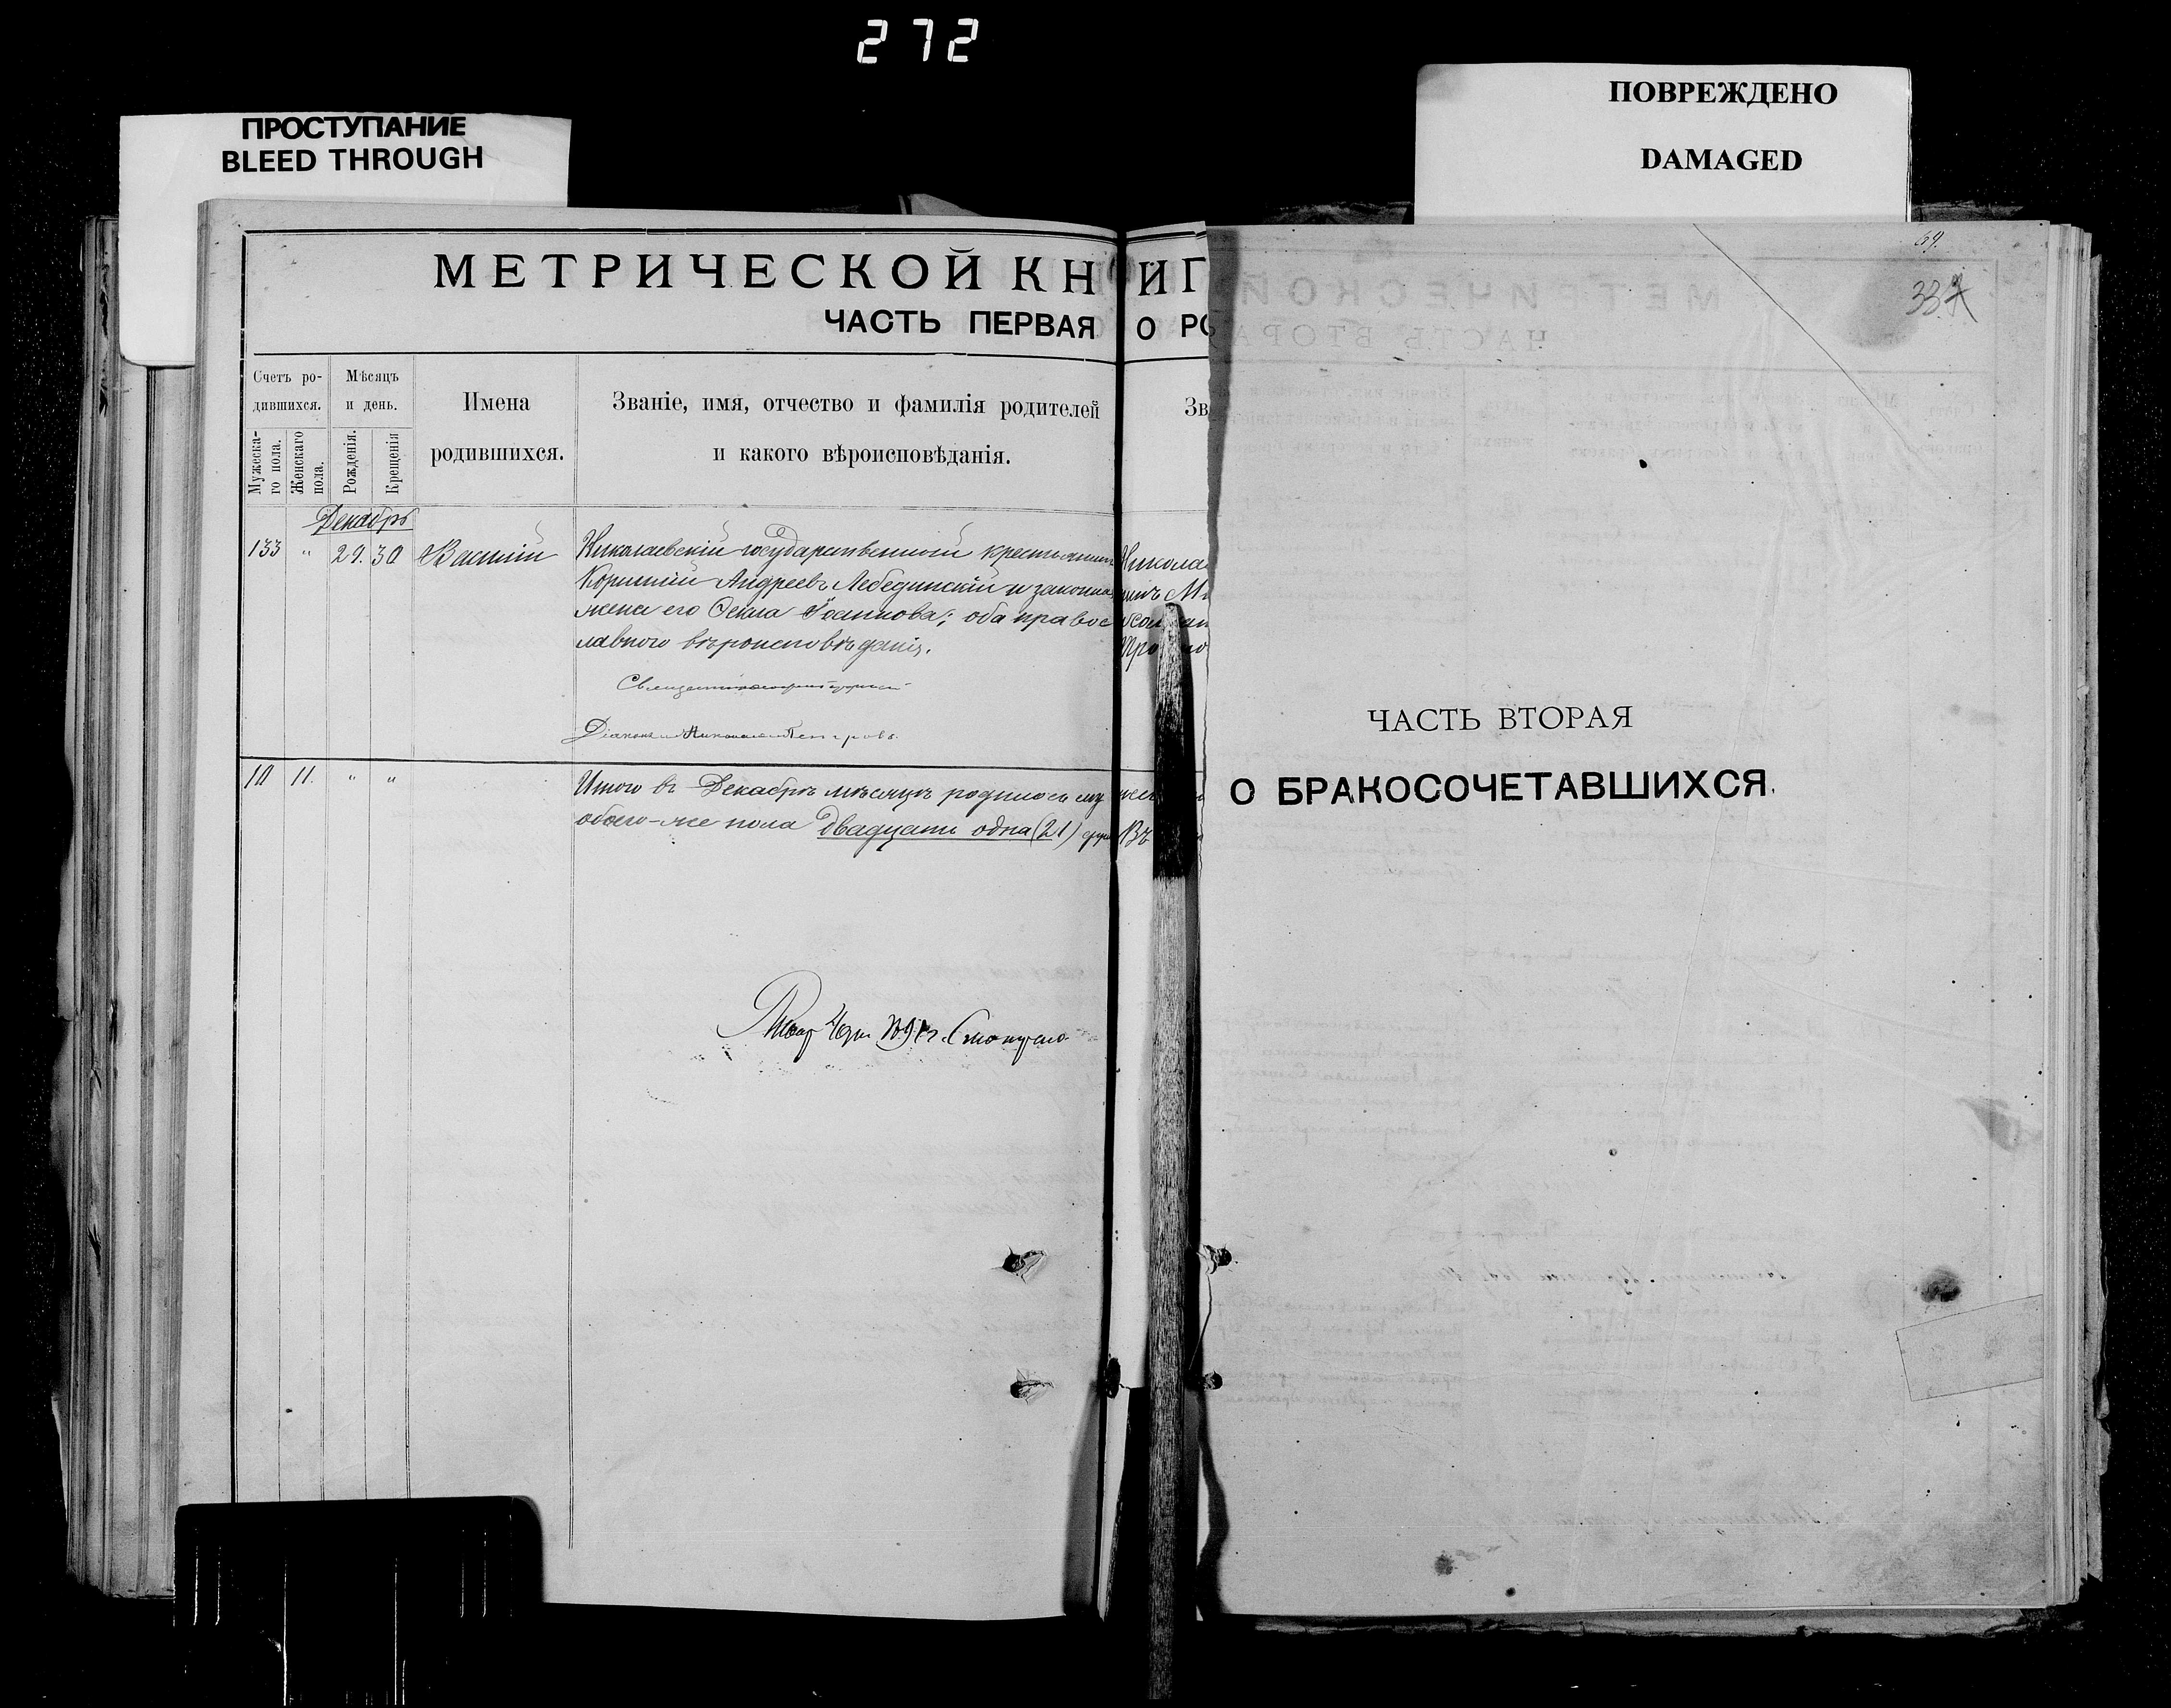 272
ПРОСТУПАНИЕ
BLEED THROUGH
ПОВРЕЖДЕНО
DAMAGED
МЕТРИЧЕСКОЙ КН
ЧАСТЬ ПЕРВАЯ
Счетъ ро-
дившихся.
Мужеска-
го пола.
Женскаго
пола.
Мѣсяцъ
и день.
Рожденія.
Крещенія
Имена
родившихся.
Званіе, имя, отчество и фамилія родителей
и какого вѣроисповѣданія.
Декабрь
133 " 29. 30 Василій
Николаевскій государственный крестьянинъ
Андреевъ Лебединскій и законная
жена его Ѳекла Іоаннова; оба правос
лавного вѣроисповѣданія.
Діаконъ Николай Петровъ.
10 11. " "
Итого въ Декабрѣ мѣсяцѣ родилось му
обоего-же пола двадцать одна (21)
ИГ
О РО
Зв
Никола
69.
ЧАСТЬ ВТОРАЯ
О БРАКОСОЧЕТАВШИХСЯ.